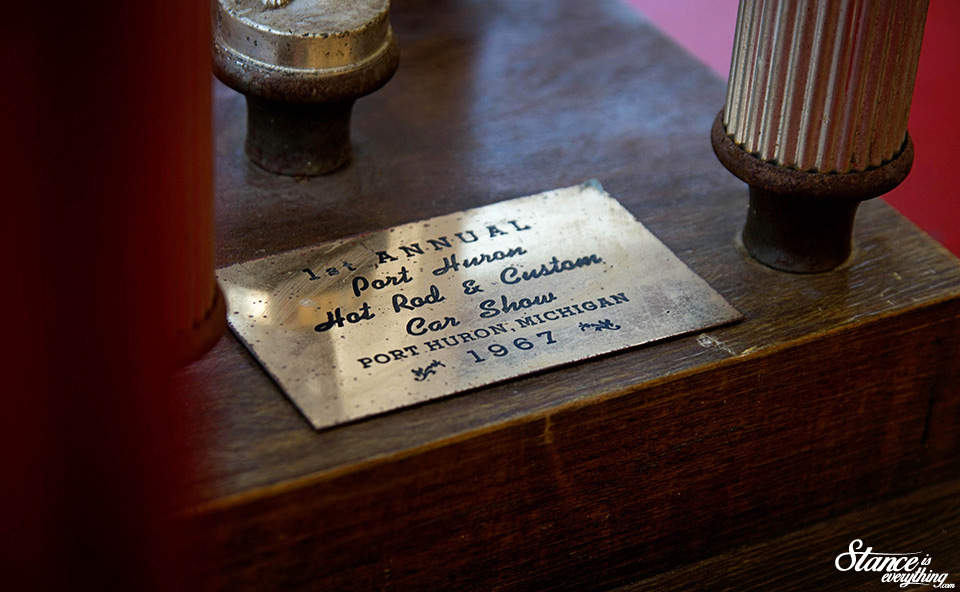 1st ANNUAL
Port Huron
Hot Rod & Custom
Car Show
PORT HURON, MICHIGAN
1967
Stance is
everything.com